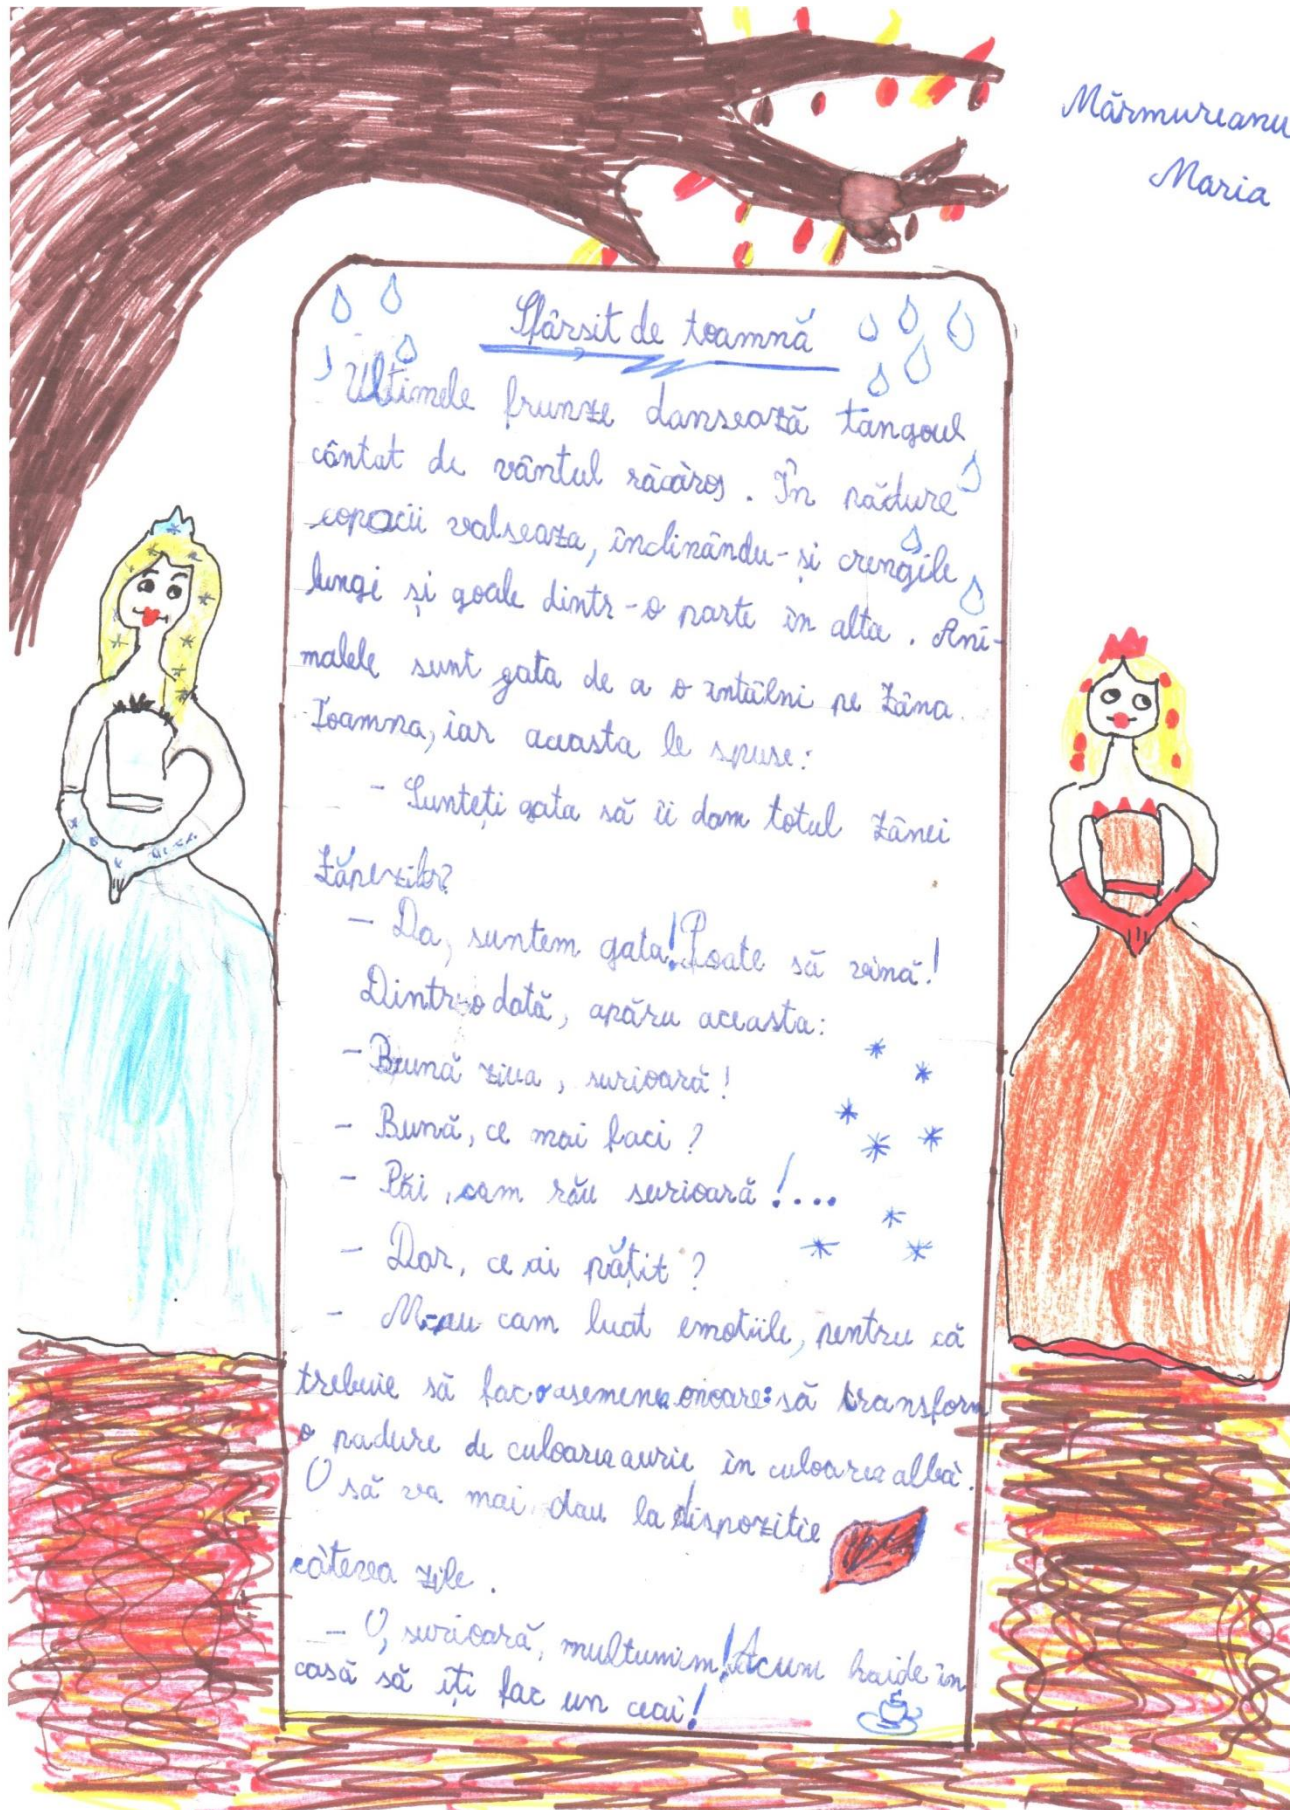 Mărmureanu
Maria
Sfârsit de toamnă
Ultimele frunze dansează tangoul
cântat de vântul răcăros. În pădure
copacii valseaza, înclinându-și crengile
lungi și goale dintr-o parte în alta. Ani-
malele sunt gata de a o întâlni pe Zâna
Toamna, iar aceasta le spuse:
- Sunteți gata să îi dam totul Zânei
Zăpezilor?
- Da, suntem gata! Poate să vină!
Dintr-o dată, apăru aceasta:
- Bună ziua, surioară!
- Bună, ce mai faci?
- Păi, cam rău surioară!...
- Dar, ce ai pățit?
- M-au cam luat emotiile, pentru că
trebuie să fac o asemenea onoare: să transform
o padure de culoarea aurie în culoarea albă.
O să va mai dau la dispozitie
câteva zile.
- O, surioară, multumim! Acum haide în
casă să iți fac un ceai!